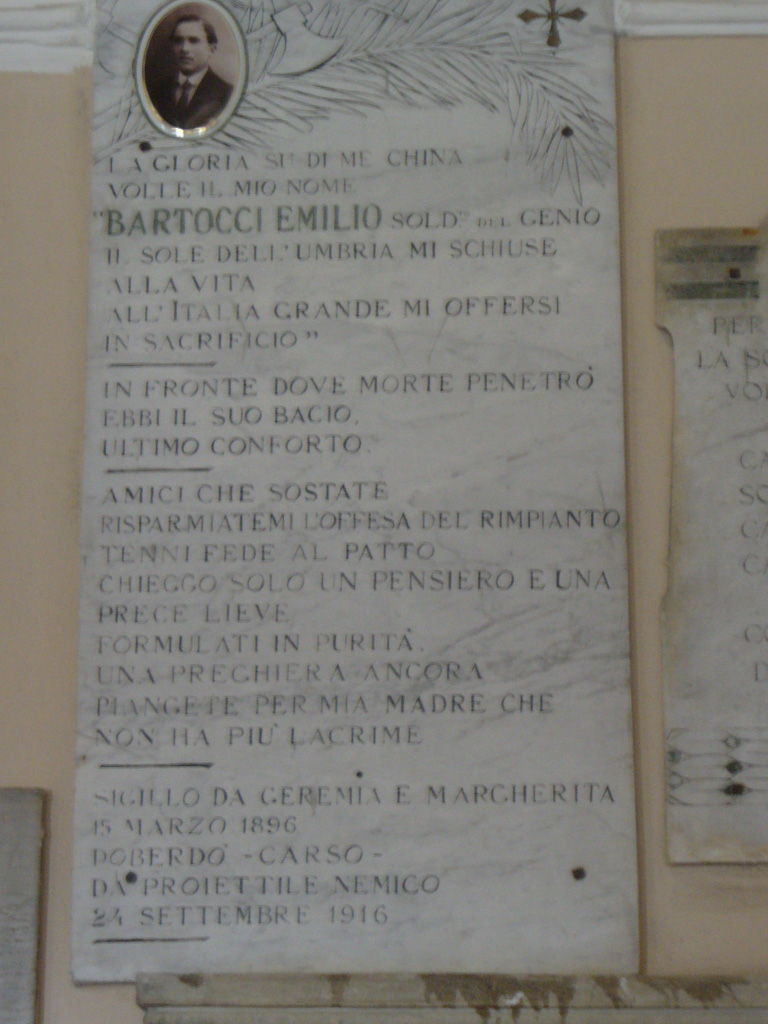 LA GLORIA SU DI ME CHINA
VOLLE IL MIO NOME
"BARTOCCI EMILIO SOLD^TO DEL GENIO
IL SOLE DELL'UMBRIA MI SCHIUSE
ALLA VITA
ALL'ITALIA GRANDE MI OFFERSI
IN SACRIFICIO"
IN FRONTE DOVE MORTE PENETRÒ
EBBI IL SUO BACIO,
ULTIMO CONFORTO.
AMICI CHE SOSTATE
RISPARMIATEMI L'OFFESA DEL RIMPIANTO
TENNI FEDE AL PATTO
CHIEGGO SOLO UN PENSIERO E UNA
PRECE LIEVE
FORMULATI IN PURITÀ.
UNA PREGHIERA ANCORA
PIANGETE PER MIA MADRE CHE
NON HA PIU' LACRIME
SIGILLO DA GEREMIA E MARGHERITA
15 MARZO 1896
DOBERDO' - CARSO -
DA PROIETTILE NEMICO
24 SETTEMBRE 1916
PER
LA